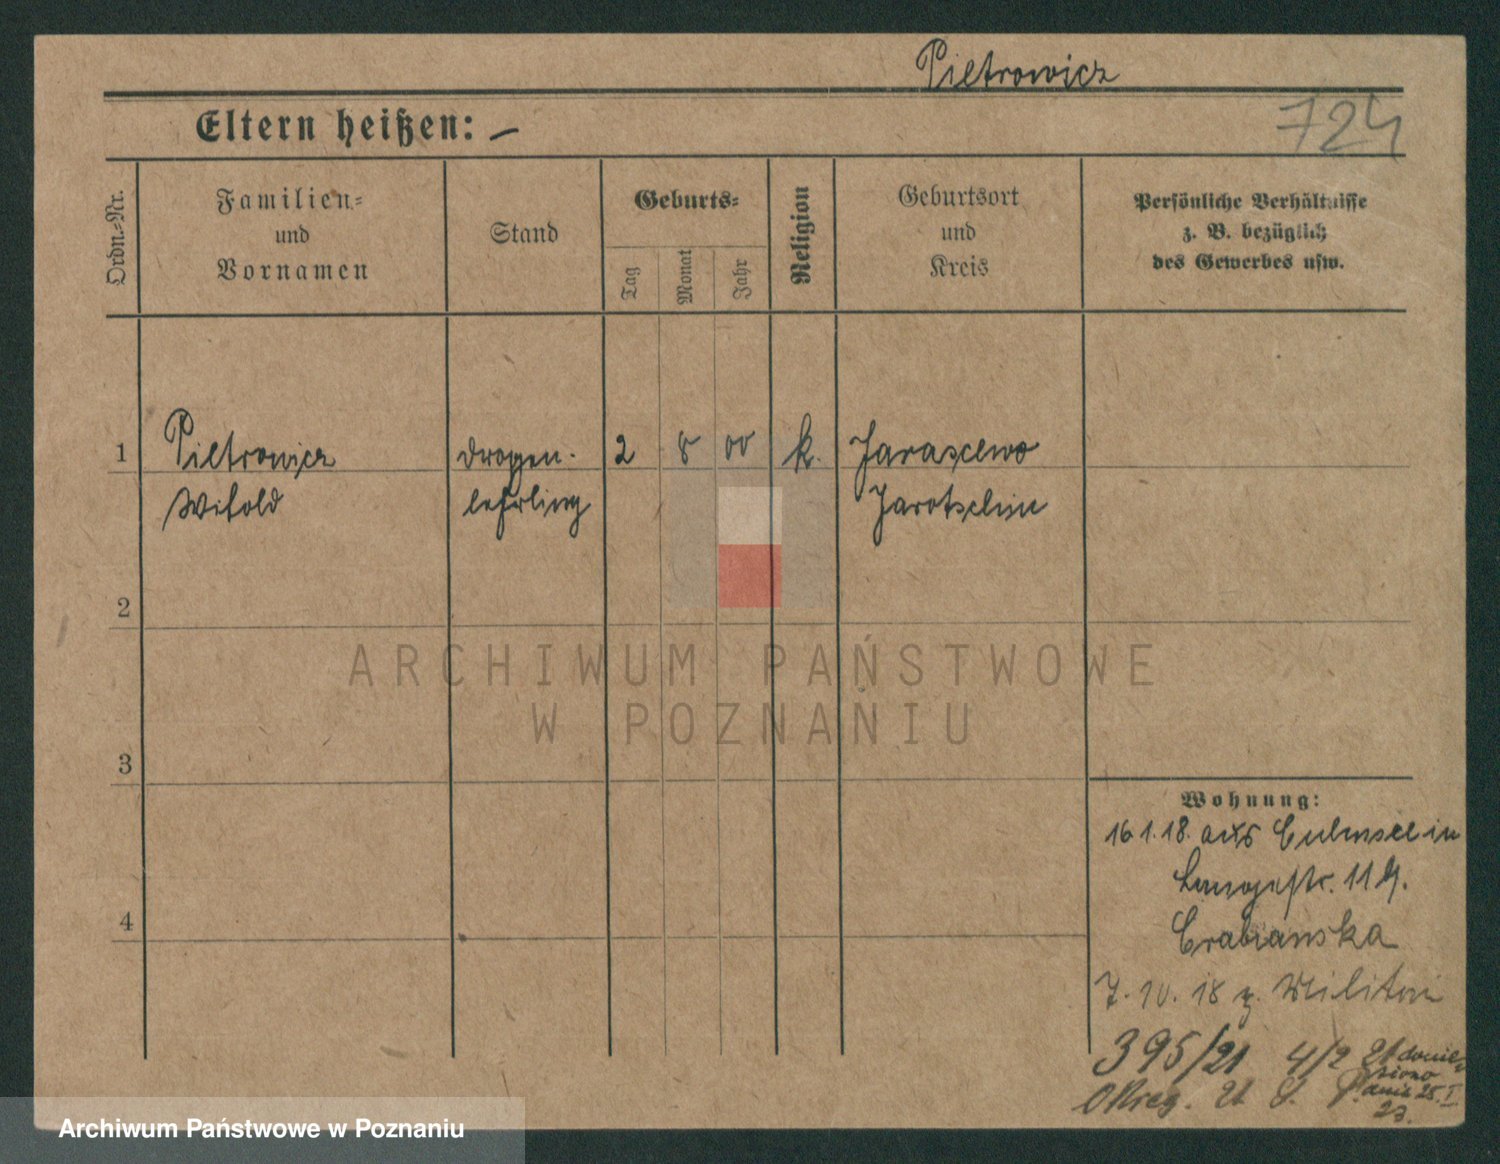 Pietrowicz
Eltern heißen: —
724
Ordn.-Nr.
Familien-
und
Vornamen
Stand
Geburts-
Tag
Monat
Jahr
Religion
Geburtsort
und
Kreis
Persönliche Verhältnisse
z. B. bezüglich
des Gewerbes usw.
1 Pietrowicz drogen- 2 8 00 k. Jaraczewo
Witold lehrling Jarotschin
2
3
4
ARCHIWUM PAŃSTWOWE
W POZNANIU
Wohnung:
16.1.18. aus Culmsee in
Langestr. 11
7.10.18 z. Militär
395/21 4/2 21
25. I
23.
Archiwum Państwowe w Poznaniu